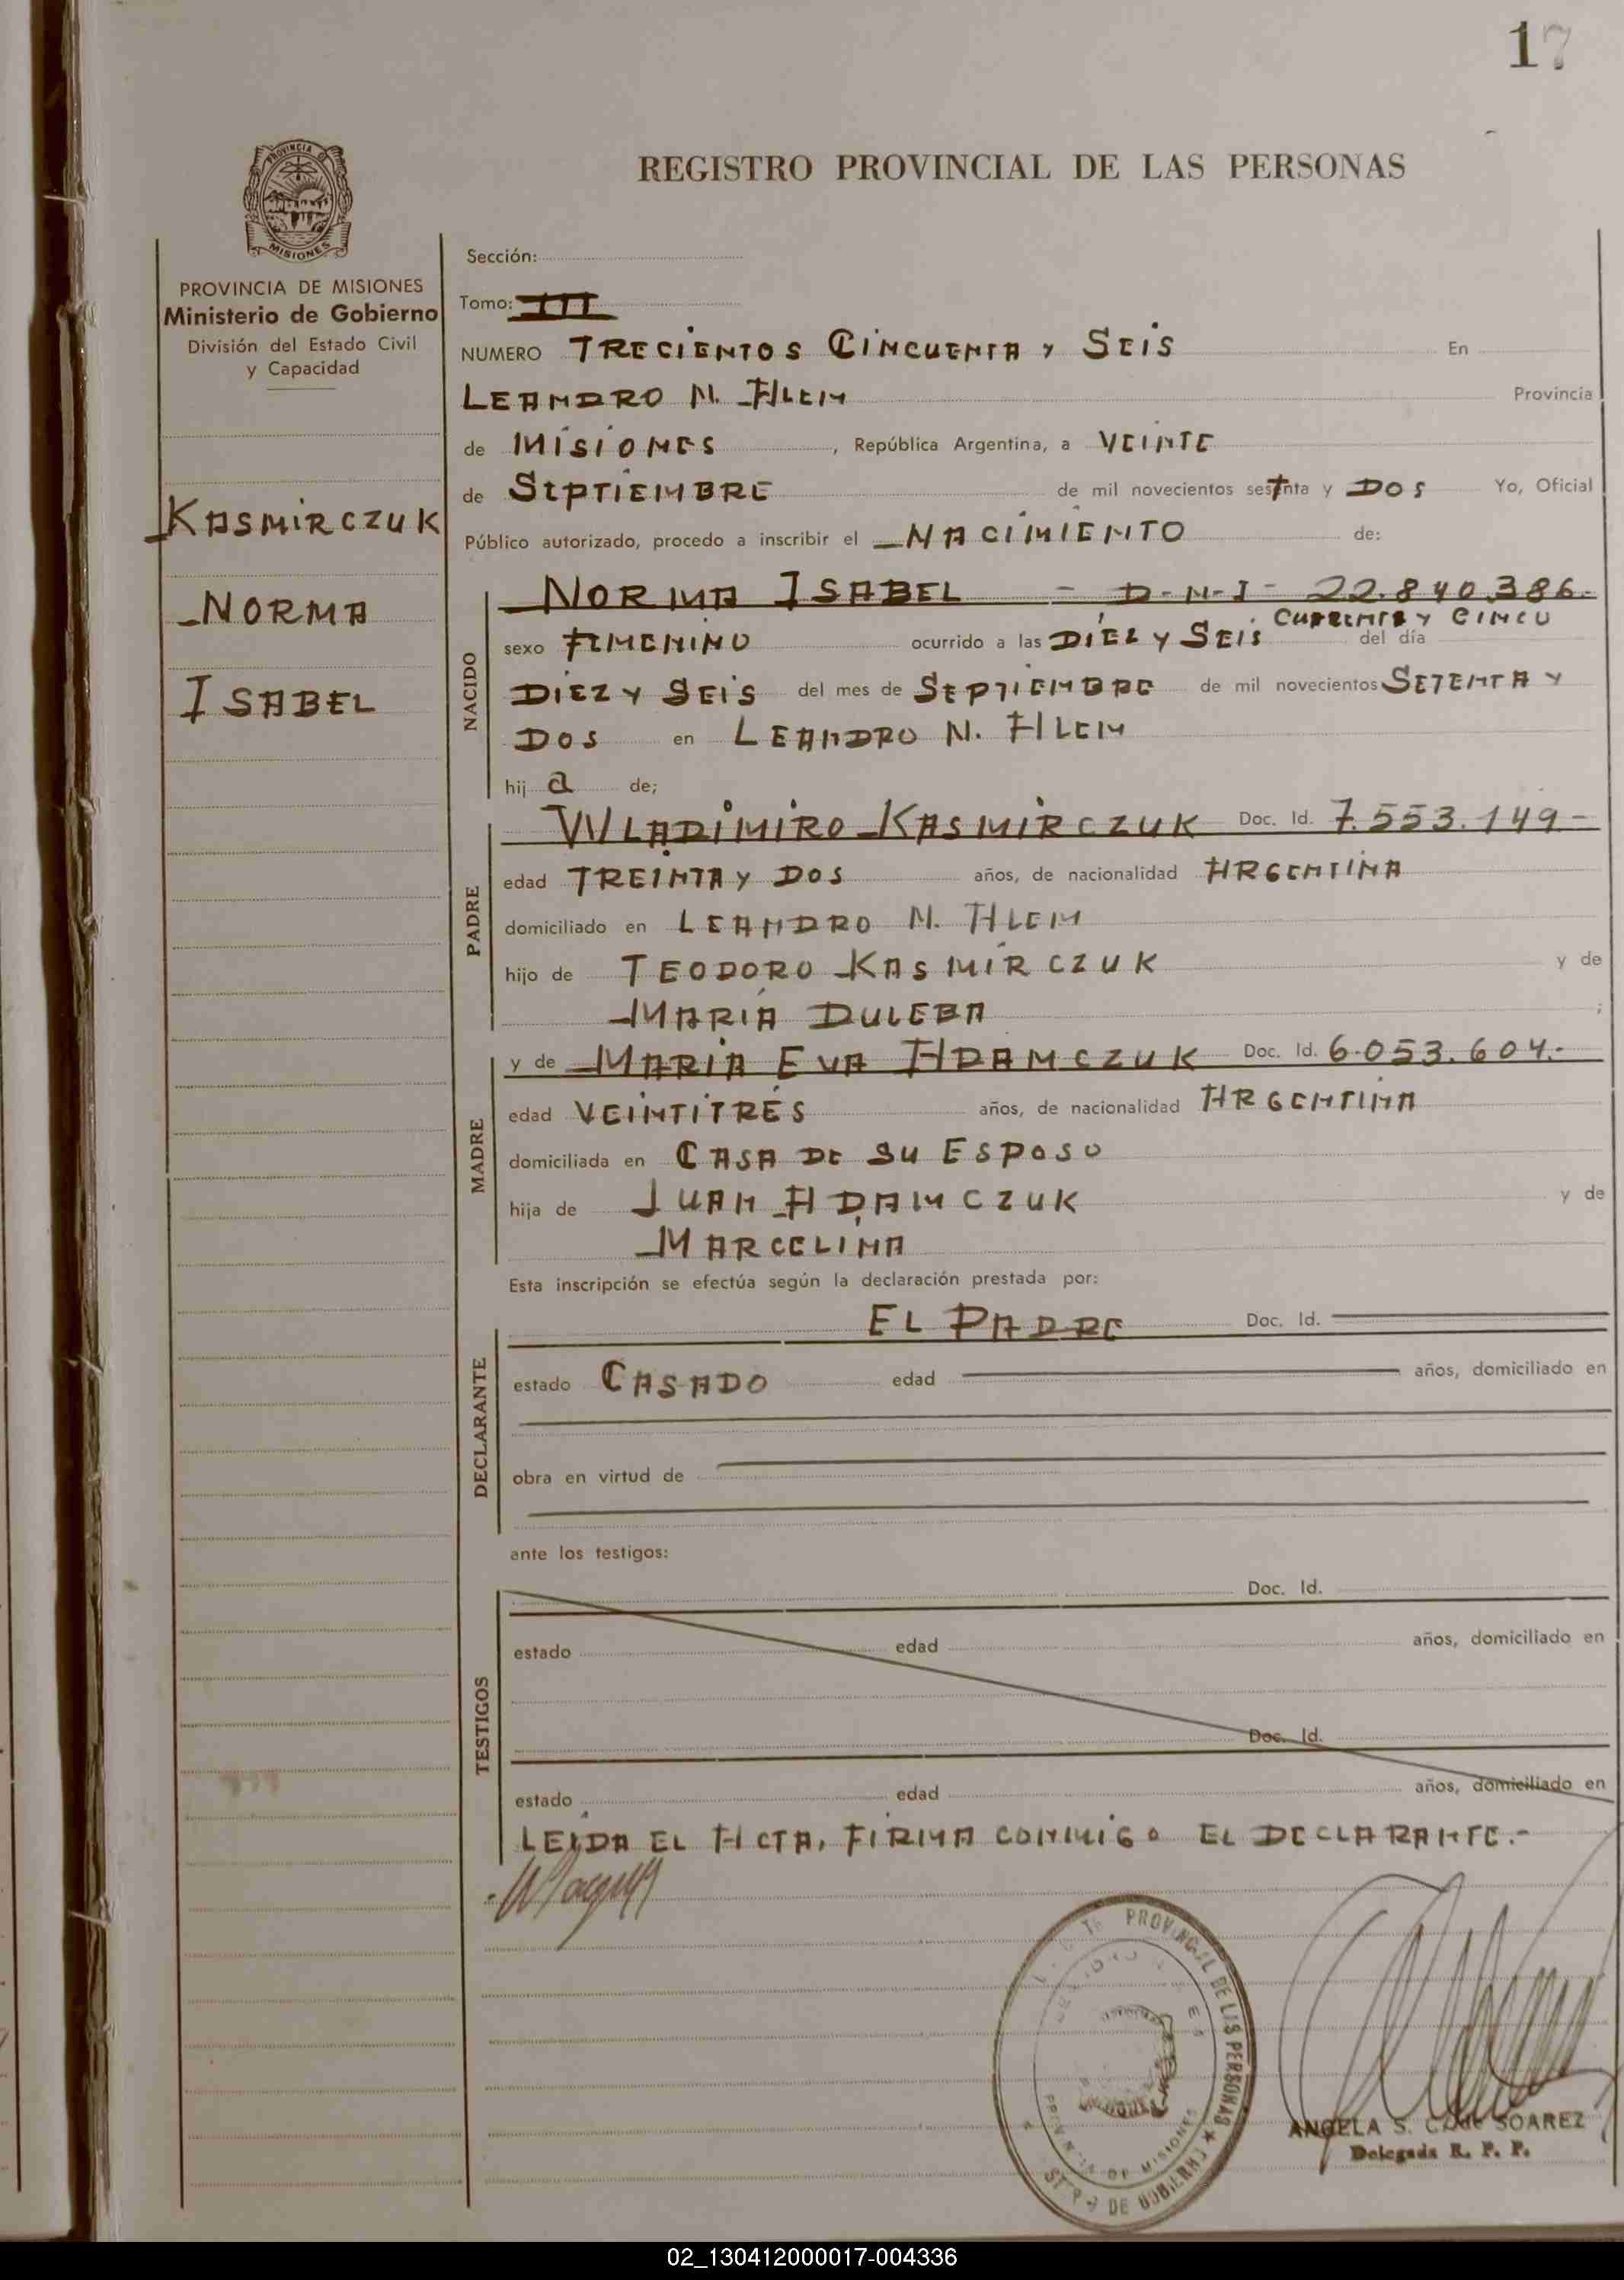 17
REGISTRO PROVINCIAL DE LAS PERSONAS
PROVINCIA DE MISIONES
Ministerio de Gobierno
División del Estado Civil
y Capacidad
KASMIRCZUK
NORMA
ISABEL
Sección:
Tomo: III
NUMERO TRECIENTOS CINCUENTA Y SEIS En
LEANDRO N. ALEM Provincia
de MISIONES, República Argentina, a VEINTE
de SEPTIEMBRE de mil novecientos setenta y DOS Yo, Oficial
Público autorizado, procedo a inscribir el NACIMIENTO de:
NACIDO
NORMA ISABEL - D-N-I- 22.840.386.-
CUARENTA Y CINCO
sexo FEMENINO ocurrido a las DIEZ Y SEIS del día
DIEZ Y SEIS del mes de SEPTIEMBRE de mil novecientos SETENTA Y
DOS en LEANDRO N. ALEM
hij a de;
PADRE
WLADIMIRO KASMIRCZUK Doc. Id. 7.553.149-
edad TREINTA Y DOS años, de nacionalidad ARGENTINA
domiciliado en LEANDRO N. ALEM
hijo de TEODORO KASMIRCZUK y de
MARIA DULEBA ;
MADRE
y de MARIA EVA ADAMCZUK Doc. Id. 6.053.604.-
edad VEINTITRES años, de nacionalidad ARGENTINA
domiciliada en CASA DE SU ESPOSO
hija de JUAN ADAMCZUK y de
MARCELINA
Esta inscripción se efectúa según la declaración prestada por:
DECLARANTE
EL PADRE Doc. Id.
estado CASADO edad años, domiciliado en
obra en virtud de
ante los testigos:
TESTIGOS
Doc. Id.
estado edad años, domiciliado en
Doc. Id.
estado edad años, domiciliado en
LEIDA EL ACTA, FIRMA CONMIGO EL DECLARANTE.-
PROVINCIAL DE LAS PERSONAS
PROVINCIA DE MISIONES
DE GOBIERNO
ANGELA S. C. de SOAREZ
Delegada R. P. P.
02_130412000017-004336